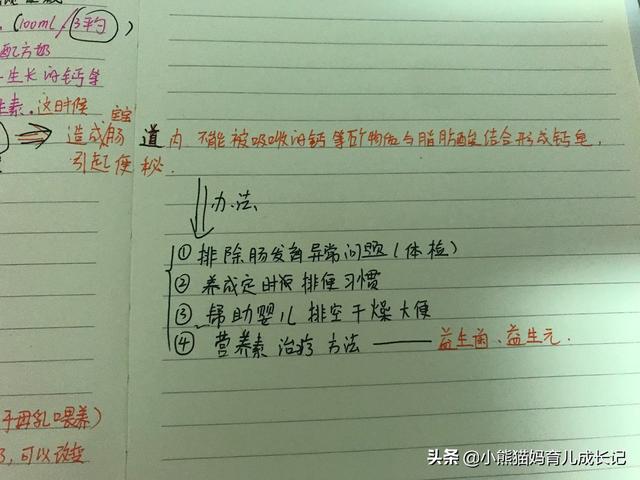 (100ml/3平勺)
配方奶
生长的钙等
素.这时候宝宝
造成肠道内 不能被吸收的钙等矿物质与脂肪酸结合形成钙皂,
引起便秘.
办法
①排除肠发育异常问题(体检)
②养成定时 排便习惯
③帮助婴儿排空干燥大便
④营养素治疗方法——益生菌、益生元.
于母乳喂养)
,可以改变
头条 @小熊猫妈育儿成长记